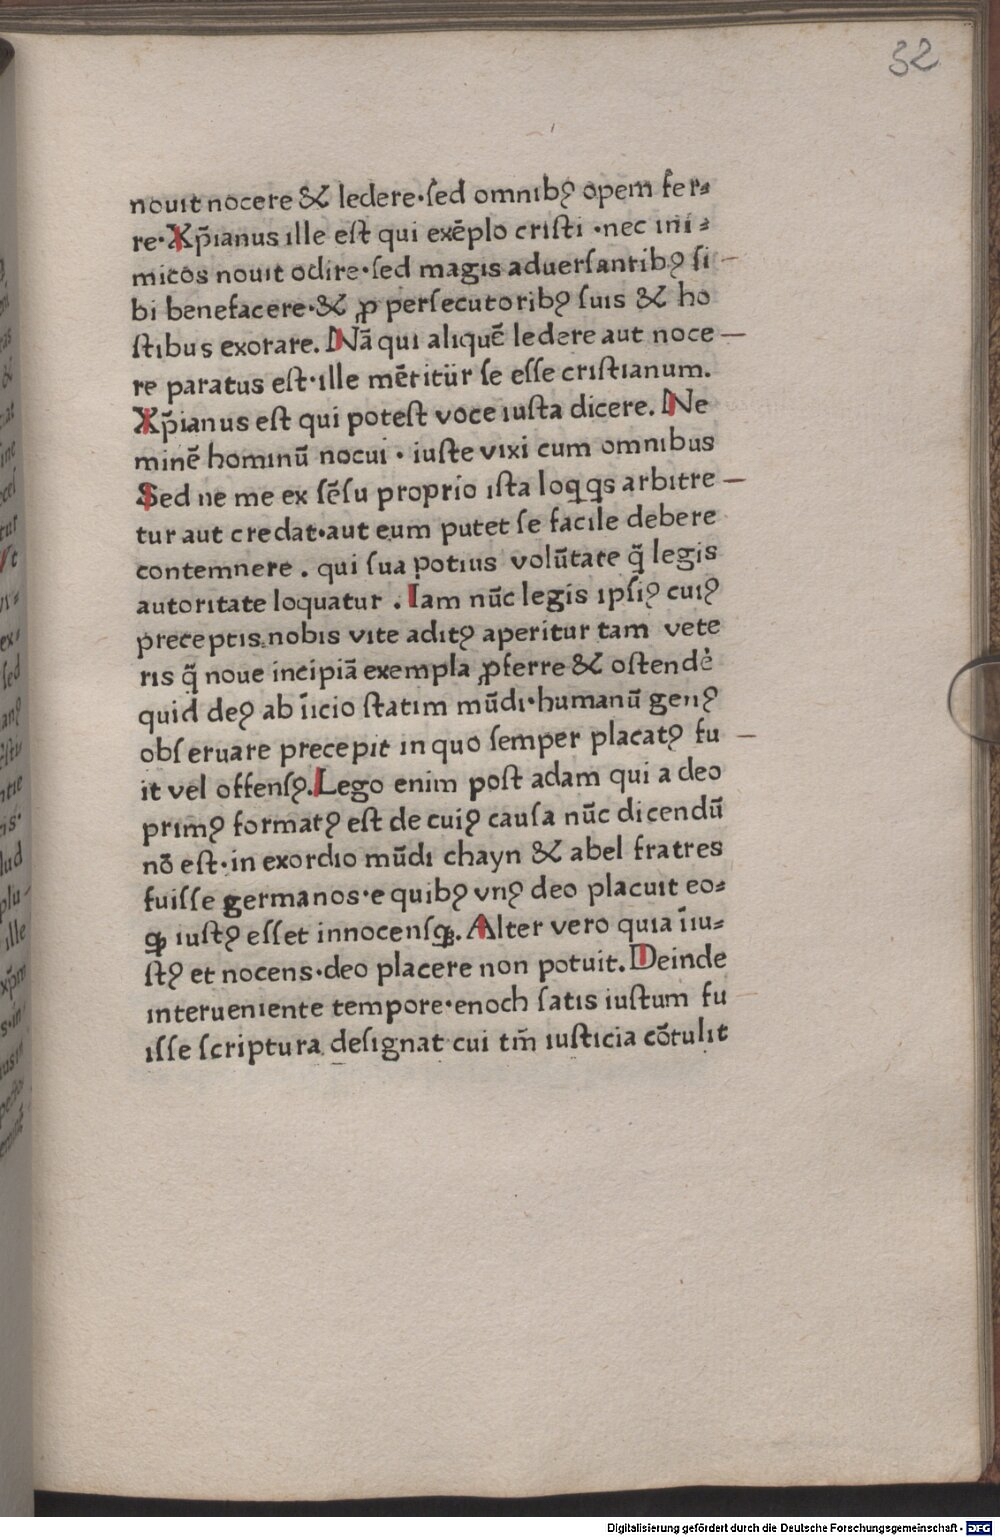 32
nouit nocere & ledere·ſed omnibꝰ opem fer⸗
re·Xp̄ianus ille eſt qui exēplo criſti ·nec ini⸗
micos nouit odire·ſed magis aduerſantibꝰ ſi
bi benefacere·& ꝓ perſecutoribꝰ ſuis & ho
ſtibus exorare. Nā qui aliquē ledere aut noce
re paratus eſt·ille mētitūr ſe eſſe criſtianum.
Xp̄ianus eſt qui poteſt voce iuſta dicere. Ne
minē hominū nocui · iuſte vixi cum omnibus
Sed ne me ex ſēſu proprio iſta loqqs arbitre
tur aut credat·aut eum putet ſe facile debere
contemnere . qui ſua potius volūtate q̄ legis
autoritate loquatur . Iam nūc legis ipſiꝰ cuiꝰ
preceptis nobis vite aditꝰ aperitur tam vete
ris q̄ noue incipiā exempla ꝓferre & oſtendē
quid deꝰ ab īicio ſtatim mūdi·humanū genꝰ
obſeruare precepit in quo ſemper placatꝰ fu
it vel offenſꝰ.Lego enim poſt adam qui a deo
primꝰ formatꝰ eſt de cuiꝰ cauſa nūc dicendū
nō eſt·in exordio mūdi chayn & abel fratres
fuiſſe germanos·e quibꝰ vnꝰ deo placuit eo⸗
ꝙ iuſtꝰ eſſet innocenſꝙ. Alter vero quia īiu⸗
ſtꝰ et nocens·deo placere non potuit. Deinde
interueniente tempore·enoch ſatis iuſtum fu
iſſe ſcriptura deſignat cui tm̄ iuſticia cōtulit
Digitalisierung gefördert durch die Deutsche Forschungsgemeinschaft - DFG